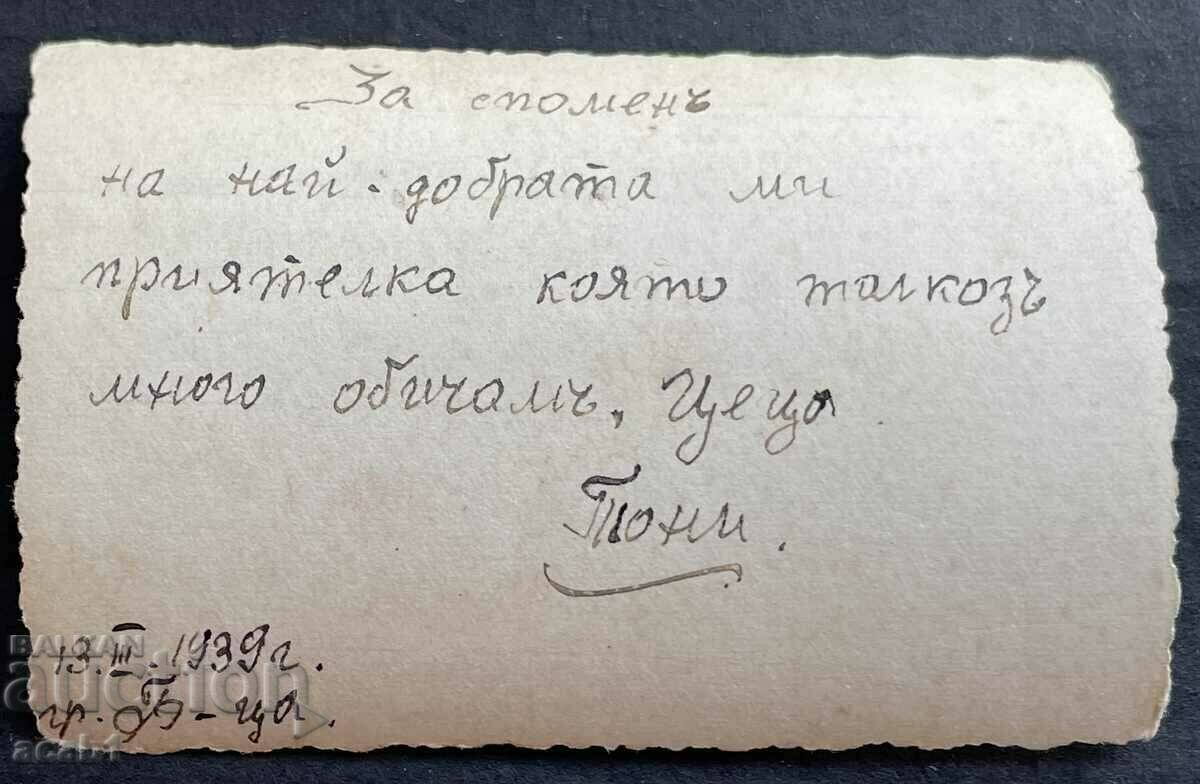 За споменъ
на най-добрата ми
приятелка която толкозъ
много обичамъ, Цеца.
Тони.
13.III.1939г.
гр. -ца.
BALKAN
auction
acab1